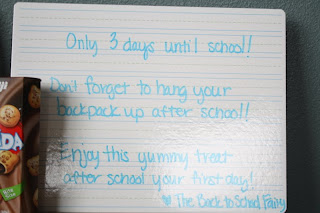 Only 3 days until school!
Don't forget to hang your
backpack up after school!
Enjoy this yummy treat
after school your first day!
♥ The Back to School Fairy
DA